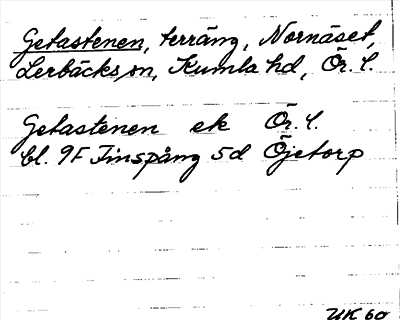 Getastenen, terräng, Nornäset,
Lerbäcks sn, Kumla hd, Ör. l.
Getastenen ek Ör. l.
bl. 9F Finspång 5d Öjetorp
UK 60